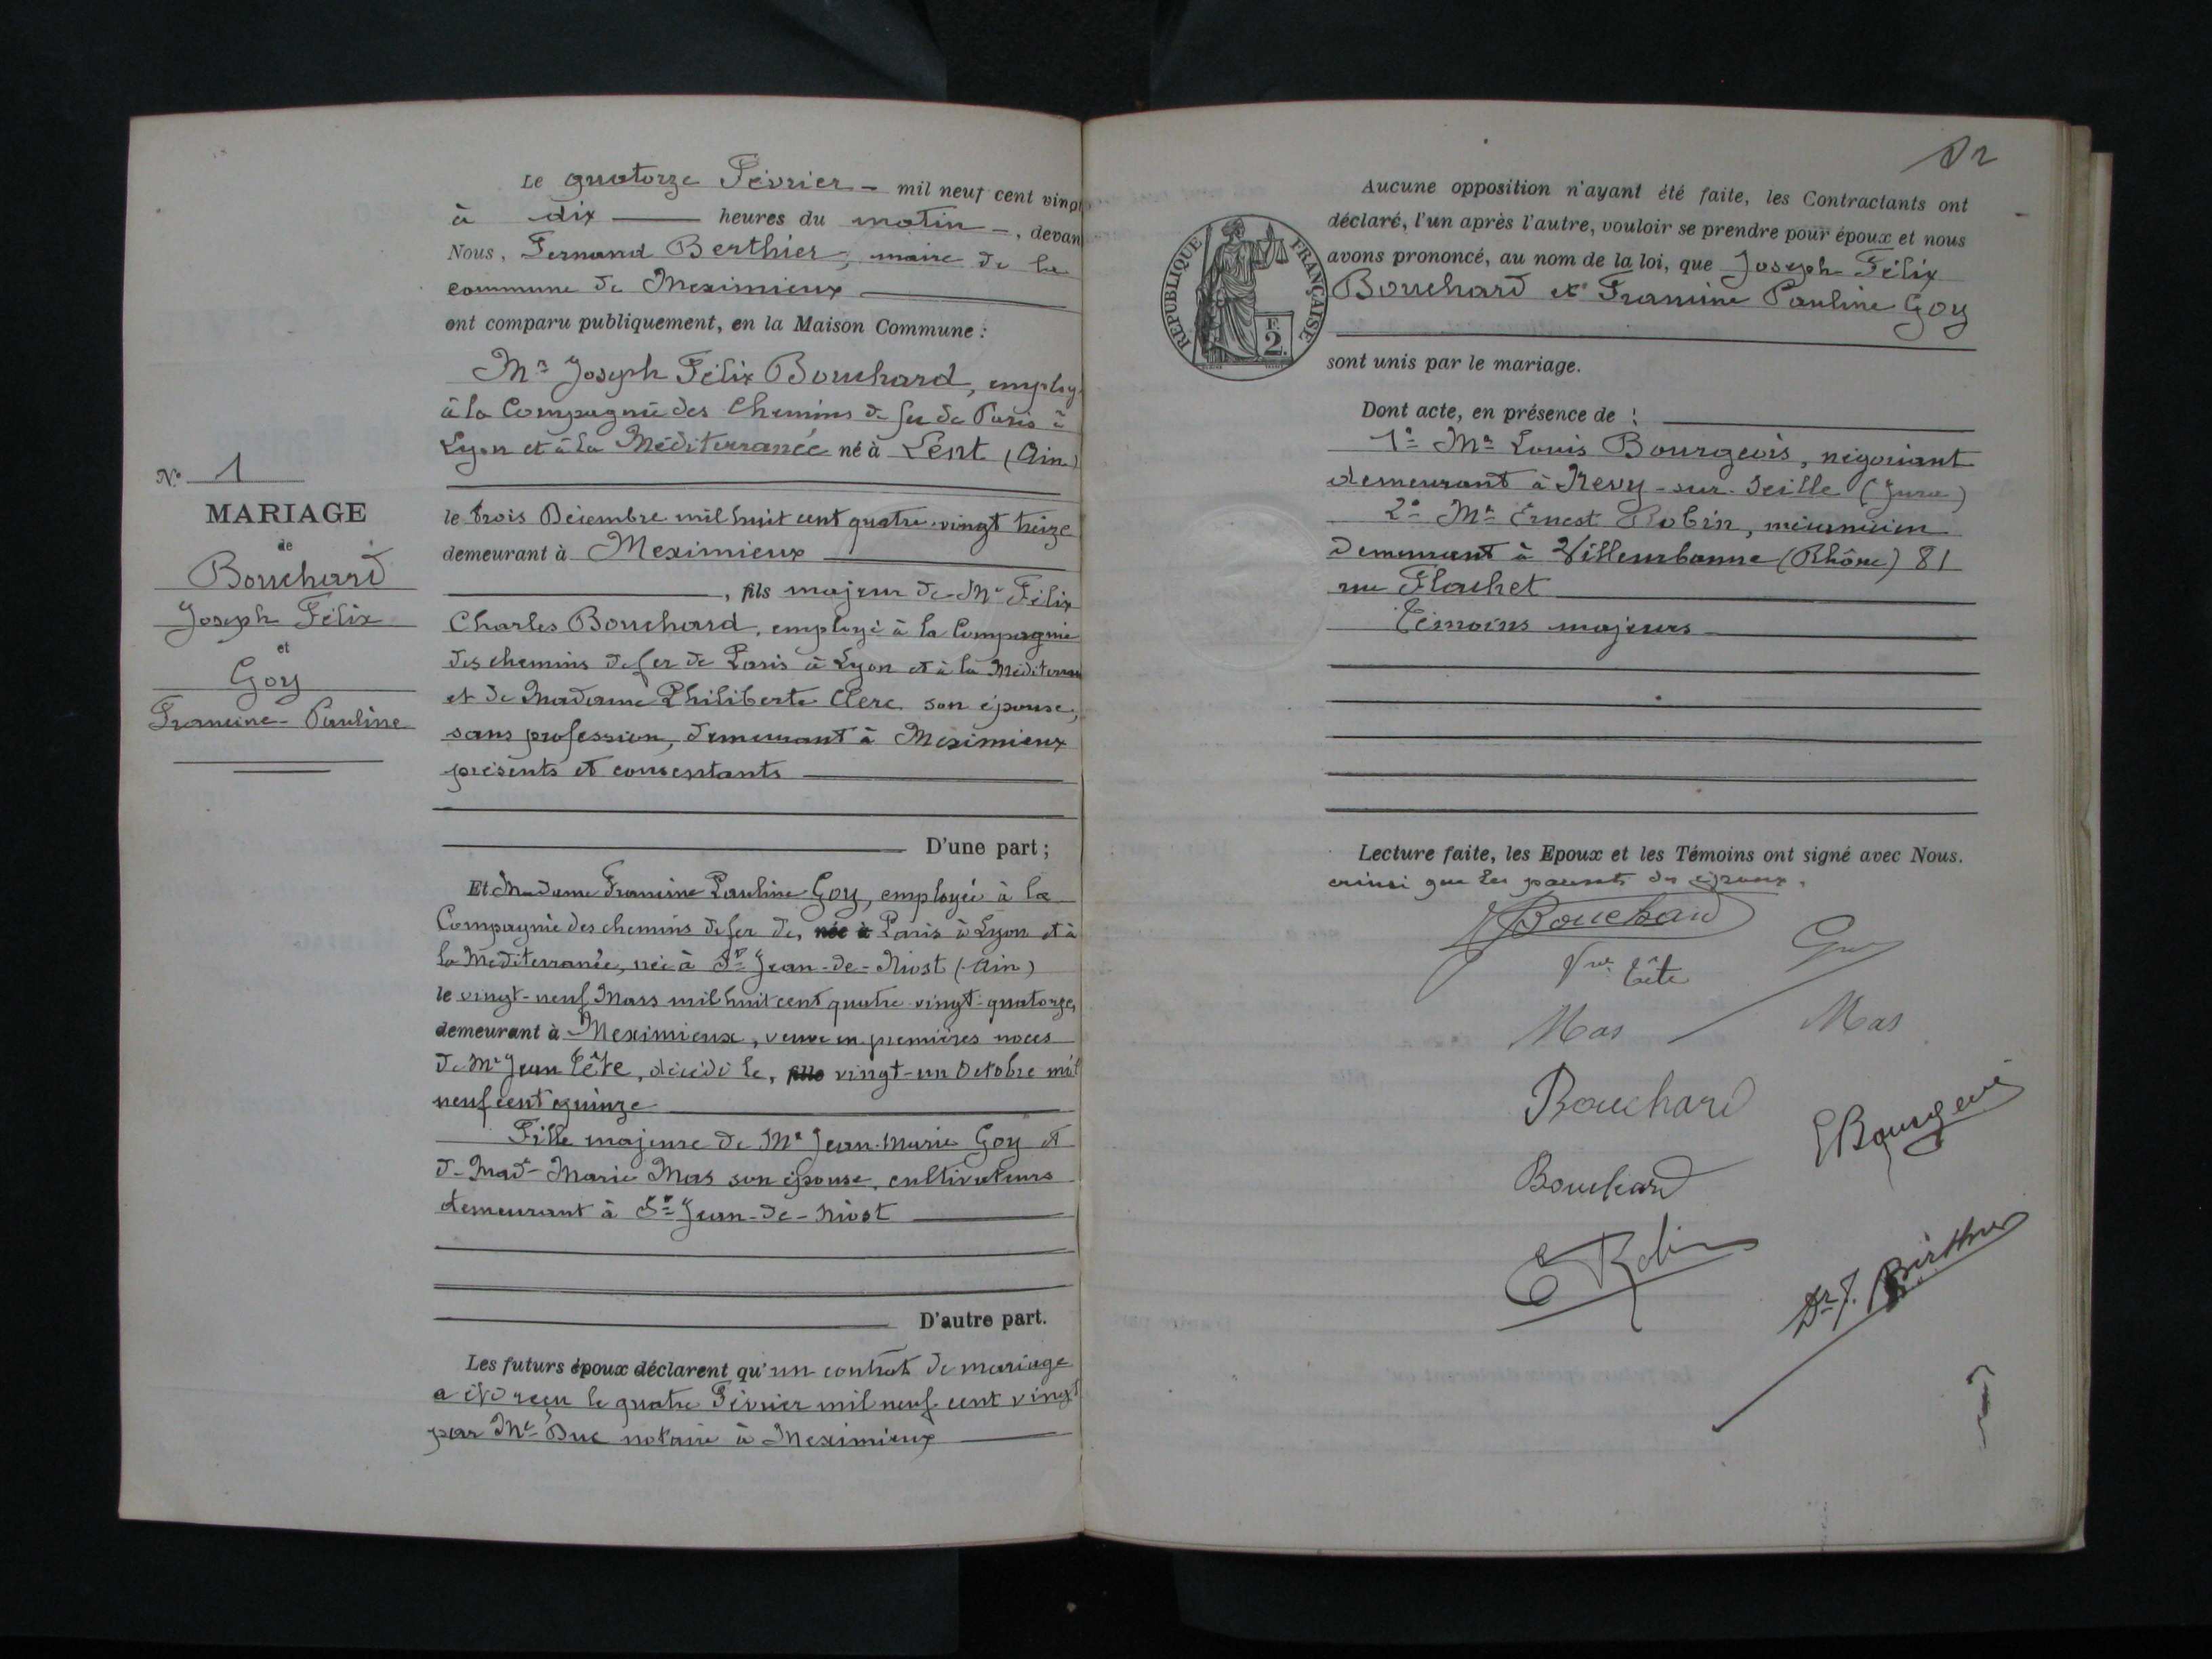 Le quatorze Février - mil neuf cent vingt
à dix heures du matin -, devan
Nous, Fernand Berthier, maire de la
commune de Meximieux
ont comparu publiquement, en la Maison Commune :
Mr Joseph Félix Bouchard, employ
à la Compagnie des Chemins de fer de Paris à
Lyon et à la Méditerranée né à Lent (Ain)
le trois Décembre mil huit cent quatre-vingt treize
demeurant à Meximieux
, fils majeur de Mr Félix
Charles Bouchard, employé à la Compagnie
des chemins de fer de Paris à Lyon et à la Méditerran
et de Madame Philiberte Clerc son épouse,
sans profession, demeurant à Meximieux
présents et consentants
D'une part ;
Et Madame Francine Pauline Goy, employée à la
Compagnie des chemins de fer de, née à Paris à Lyon et à
la Méditerranée, née à St Jean-de-Niost (Ain)
le vingt-neuf Mars mil huit cent quatre-vingt-quatorze,
demeurant à Meximieux, veuve en premières noces
de Mr Jean Tête, décédé le, fille vingt-un Octobre mil
neuf cent quinze
Fille majeure de Mr Jean-Marie Goy et
de Made Marie Mas son épouse, cultivateurs
demeurant à St Jean-de-Niost
D'autre part.
Les futurs époux déclarent qu'un contrat de mariage
a été reçu le quatre Février mil neuf cent vingt
par Me Duc notaire à Meximieux
No 1
MARIAGE
de
Bouchard
Joseph Félix
et
Goy
Francine-Pauline
REPUBLIQUE FRANÇAISE
F.
2.
Aucune opposition n'ayant été faite, les Contractants ont
déclaré, l'un après l'autre, vouloir se prendre pour époux et nous
avons prononcé, au nom de la loi, que Joseph Félix
Bouchard et Francine Pauline Goy
sont unis par le mariage.
Dont acte, en présence de :
1o Mr Louis Bourgeois, négociant
demeurant à Nevy-sur-Seille (Jura)
2o Mr Ernest Robin, mécanicien
demeurant à Villeurbanne (Rhône) 81
rue Flachet
Témoins majeurs
Lecture faite, les Epoux et les Témoins ont signé avec Nous.
ainsi que les parents des époux.
Bouchard
Goy
Vve Tête
Mas
Mas
Bouchard
Bourgeois
Bouchard
E Robin
Dr F. Berthier